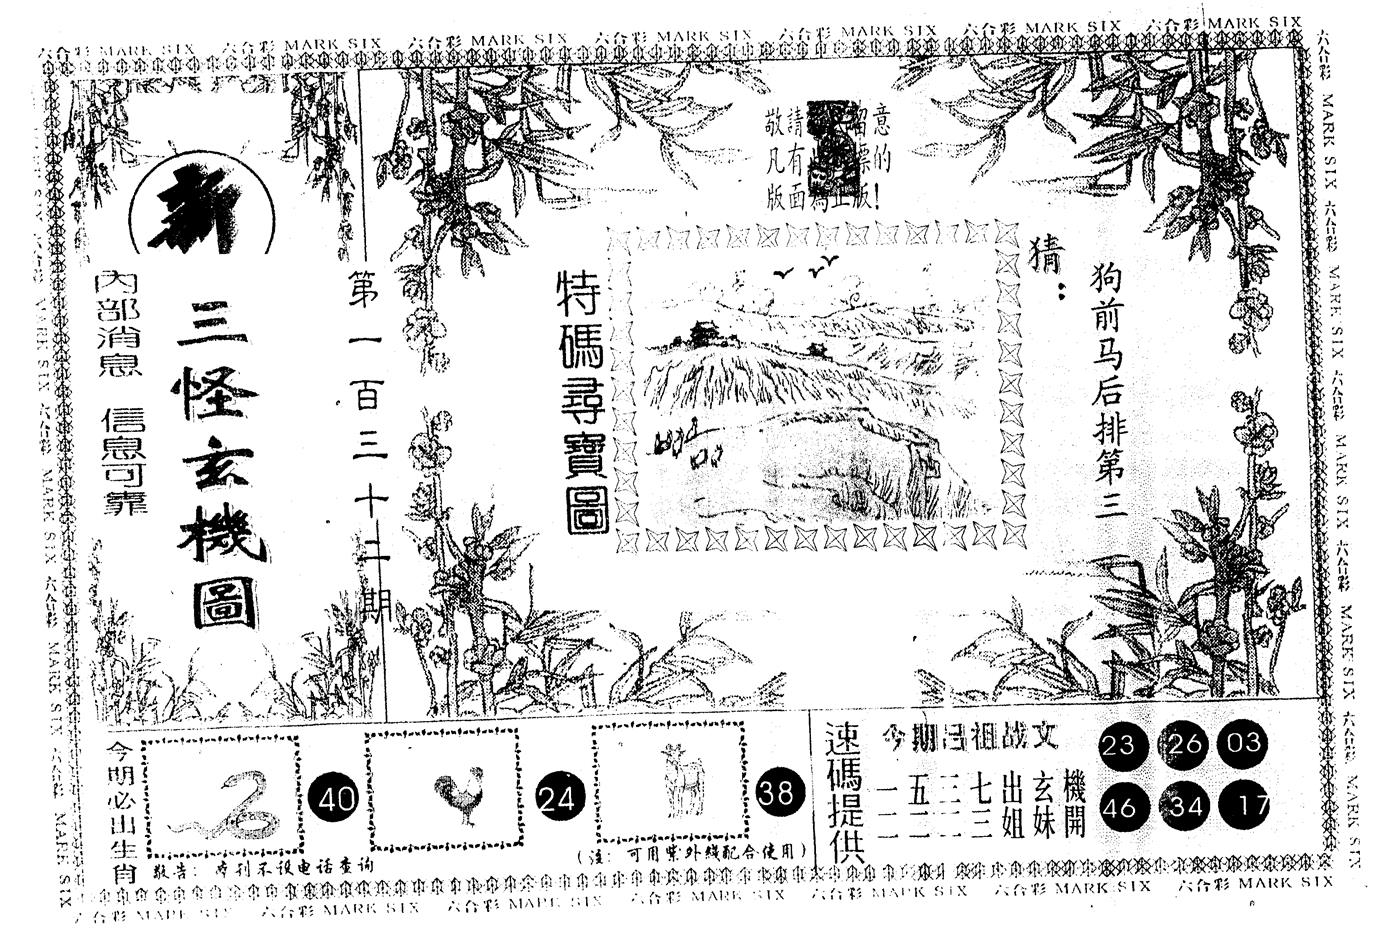 六合彩 MARK SIX 六合彩 MARK SIX 六合彩 MARK SIX 六合彩 MARK SIX 六合彩 MARK SIX 六合彩 MARK SIX 六合彩 MARK SIX
新
內部消息 信息可靠
三怪玄機圖
第一百三十二期
敬請 留意
凡有 標的
版面為正版!
特碼尋寶圖
猜:
狗前马后排第三
今期必出生肖
40
24
38
敬告: 本刊不设电话查询
(注: 可用紫外线配合使用)
速碼提供
今期吕祖战文
一五三七出玄機
二二二三姐妹開
23 26 03
46 34 17
六合彩 MARK SIX 六合彩 MARK SIX 六合彩 MARK SIX 六合彩 MARK SIX 六合彩 MARK SIX 六合彩 MARK SIX 六合彩 MARK SIX